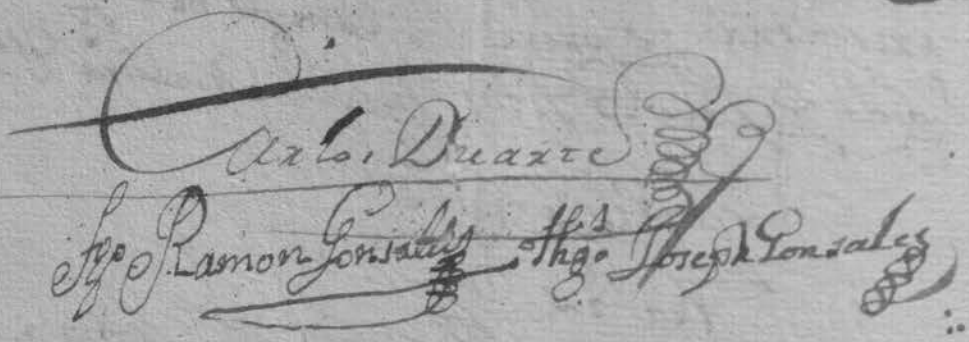 Carlos Duarte
tgo Ramon Gonsales thgo Joseph Gonsales